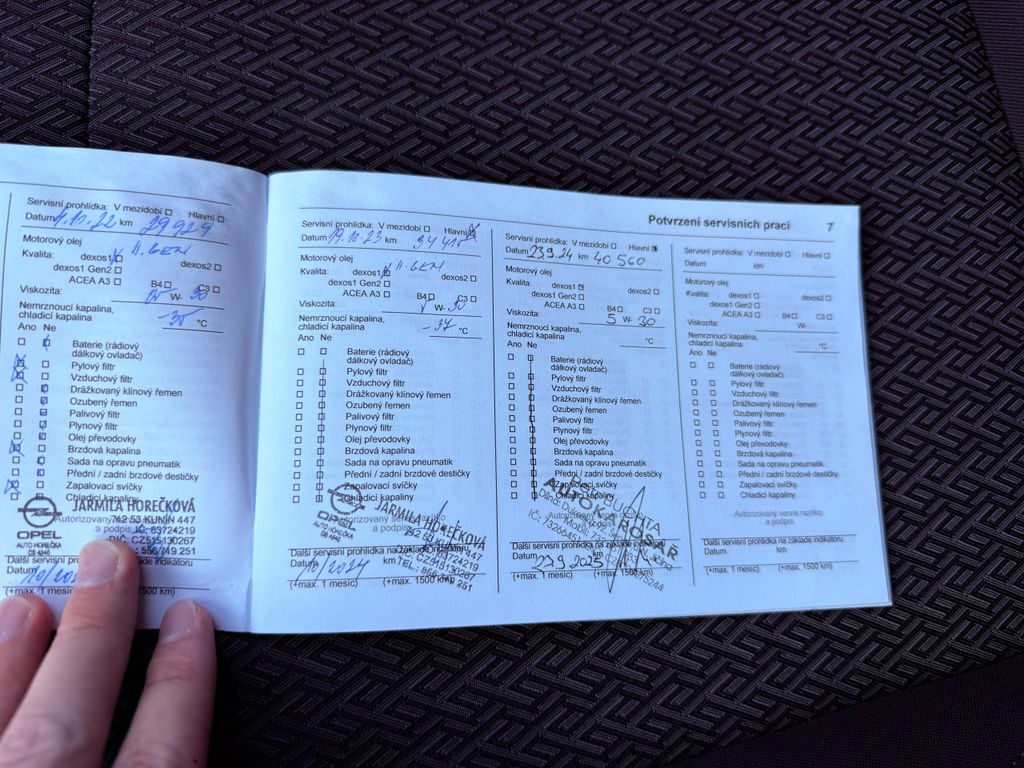 Potvrzení servisních prací 7
Servisní prohlídka: V mezidobí Hlavní
Datum 4.10.22 km 29 929
Motorový olej
Kvalita: dexos1 II. GEN dexos2
dexos1 Gen2
ACEA A3 B4 C3
Viskozita: W- 30
Nemrznoucí kapalina,
chladicí kapalina °C
Ano Ne
Baterie (rádiový
dálkový ovladač)
Pylový filtr
Vzduchový filtr
Drážkovaný klínový řemen
Ozubený řemen
Palivový filtr
Plynový filtr
Olej převodovky
Brzdová kapalina
Sada na opravu pneumatik
Přední / zadní brzdové destičky
Zapalovací svíčky
Chladicí kapaliny
JARMILA HOREČKOVÁ
742 53 KUNÍN 447
IČ: 63724219
DIČ: CZ515130267
556 749 251
OPEL
AUTO HOREČKA
Další servisní
Datum
(+max. 1 měsíc) 1500 km)
Servisní prohlídka: V mezidobí Hlavní
Datum 19.10.23 km 34 410
Motorový olej
Kvalita: dexos1 II. GEN
dexos1 Gen2
ACEA A3 B4 C3
Viskozita: W- 30
Nemrznoucí kapalina,
chladicí kapalina -37 °C
Ano Ne
Baterie (rádiový
dálkový ovladač)
Pylový filtr
Vzduchový filtr
Drážkovaný klínový řemen
Ozubený řemen
Palivový filtr
Plynový filtr
Olej převodovky
Brzdová kapalina
Sada na opravu pneumatik
Přední / zadní brzdové destičky
Zapalovací svíčky
Chladicí kapaliny
JARMILA HOREČKOVÁ
742 53 KUNÍN 447
OPEL
AUTO HOREČKA
TEL.: 556 749 251
Další servisní prohlídka na základě indikátoru
Datum 10/2024 km
(+max. 1 měsíc) (+max. 1500 km)
Servisní prohlídka: V mezidobí Hlavní
Datum 23.9.24 km 40 560
Motorový olej
Kvalita: dexos1 dexos2
dexos1 Gen2
ACEA A3 B4 C3
Viskozita: 5 W- 30
Nemrznoucí kapalina,
chladicí kapalina °C
Ano Ne
Baterie (rádiový
dálkový ovladač)
Pylový filtr
Vzduchový filtr
Drážkovaný klínový řemen
Ozubený řemen
Palivový filtr
Plynový filtr
Olej převodovky
Brzdová kapalina
Sada na opravu pneumatik
Přední / zadní brzdové destičky
Zapalovací svíčky
Chladicí kapaliny
Další servisní prohlídka na základě indikátoru
Datum 23.9.2025 km
(+max. 1 měsíc) (+max. 1500 km)
Servisní prohlídka: V mezidobí Hlavní
Datum km
Motorový olej
Kvalita: dexos1 dexos2
dexos1 Gen2
ACEA A3 B4 C3
Viskozita: W-
Nemrznoucí kapalina,
chladicí kapalina °C
Ano Ne
Baterie (rádiový
dálkový ovladač)
Pylový filtr
Vzduchový filtr
Drážkovaný klínový řemen
Ozubený řemen
Palivový filtr
Plynový filtr
Olej převodovky
Brzdová kapalina
Sada na opravu pneumatik
Přední / zadní brzdové destičky
Zapalovací svíčky
Chladicí kapaliny
Autorizovaný servis razítko
a podpis
Další servisní prohlídka na základě indikátoru
Datum km
(+max. 1 měsíc) (+max. 1500 km)